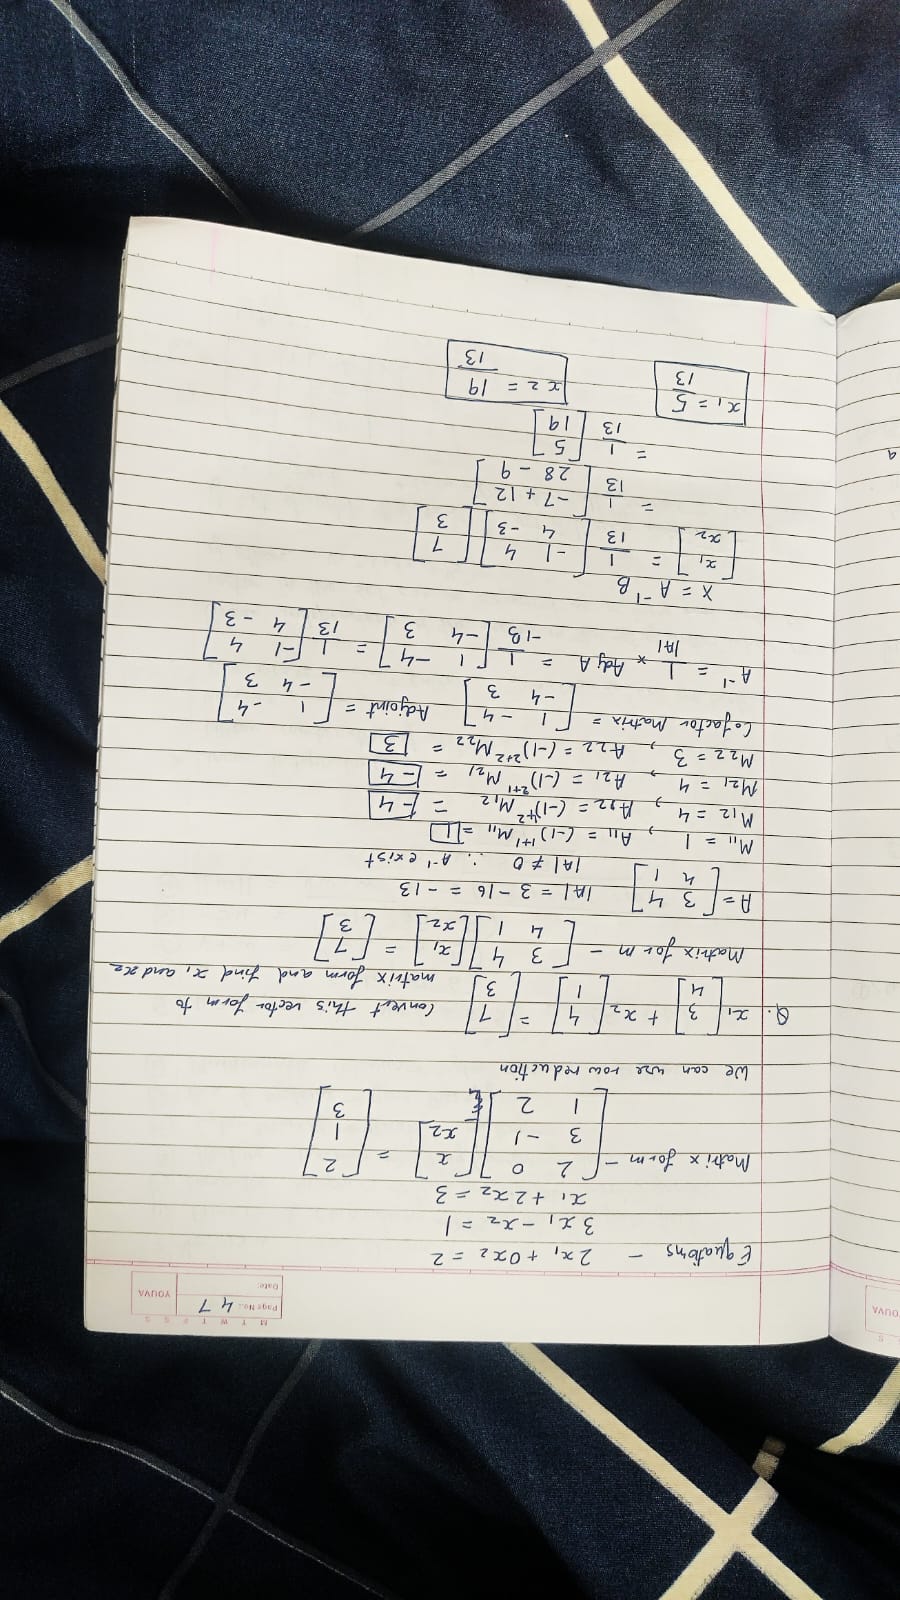 S S
YOUVA
M T W T F S S
Page No.: 47
YOUVA
Date:
Equations - 2x₁ + 0x₂ = 2
3x₁ - x₂ = 1
x₁ + 2x₂ = 3
Matrix form - [2 0; 3 -1; 1 2] [x; x₂] = [2; 1; 3]
We can use row reduction
Q. x₁ [3; 4] + x₂ [4; 1] = [7; 3] Convert this vector form to
matrix form and find x₁ and x₂
Matrix form - [3 4; 4 1] [x₁; x₂] = [7; 3]
A = [3 4; 4 1] |A| = 3 - 16 = -13
|A| ≠ 0 ∴ A⁻¹ exist
M₁₁ = 1 , A₁₁ = (-1)¹⁺¹ M₁₁ = 1
M₁₂ = 4 , A₁₂ = (-1)¹⁺² M₁₂ = -4
M₂₁ = 4 , A₂₁ = (-1)²⁺¹ M₂₁ = -4
M₂₂ = 3 , A₂₂ = (-1)²⁺² M₂₂ = 3
Cofactor Matrix = [1 -4; -4 3] Adjoint = [1 -4; -4 3]
A⁻¹ = 1/|A| × Adj A = 1/-13 [1 -4; -4 3] = 1/13 [-1 4; 4 -3]
X = A⁻¹B
[x₁; x₂] = 1/13 [-1 4; 4 -3] [7; 3]
= 1/13 [-7 + 12; 28 - 9]
= 1/13 [5; 19]
x₁ = 5/13 x₂ = 19/13
a